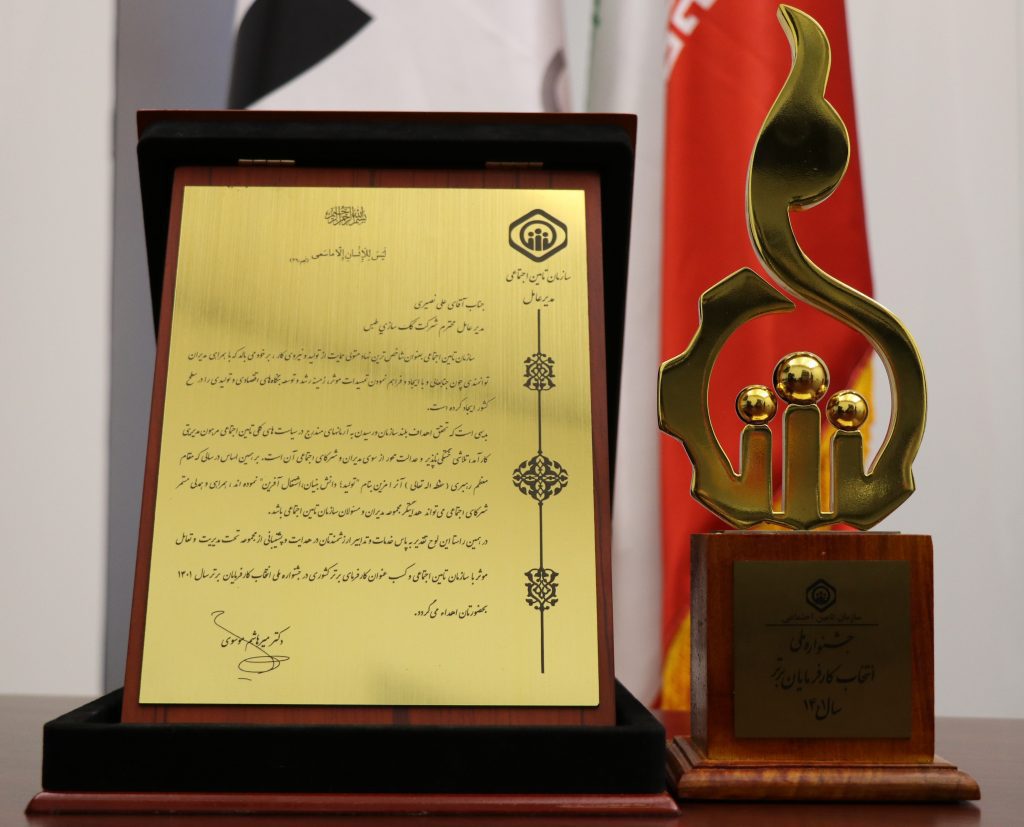 بسم الله الرحمن الرحیم
لَیْسَ لِلْإِنْسانِ إِلّا ماسَعی (نجم-۳۹)
سازمان تامین اجتماعی
مدیرعامل
جناب آقای علی نصیری
مدیر عامل محترم شرکت کک سازی طبس
سازمان تامین اجتماعی بعنوان شاخص ترین نهاد متولی حمایت از تولید و نیروی کار ، بر خود می بالد که با همراهی مدیران
توانمندی چون جنابعالی و با ایجاد و فراهم نمودن تمهیدات موثر، زمینه رشد و توسعه بنگاه‌های اقتصادی و تولیدی را در سطح
کشور ایجاد کرده است.
بدیهی است که تحقق اهداف بلند سازمان در رسیدن به آرمانهای مندرج در سیاست های کلی تامین اجتماعی مرهون مدیریتی
کارآمد، تلاشی خستگی ناپذیر و عدالت محور از سوی مدیران و شرکای اجتماعی آن است. بر همین اساس در سالی که مقام
معظم رهبری ( حفظه اله تعالی ) آنرا مزین بنام "تولید؛ دانش بنیان، اشتغال آفرین" نموده اند ، همراهی و همدلی مستمر
شرکای اجتماعی می تواند هدایتگر مجموعه مدیران و مسئولان سازمان تامین اجتماعی باشد.
در همین راستا این لوح تقدیر به پاس خدمات و تدابیر ارزشمندتان در هدایت و پشتیبانی از مجموعه تحت مدیریت و تعامل
موثر با سازمان تامین اجتماعی و کسب عنوان کارفرمای برتر کشوری در جشنواره ملی انتخاب کارفرمایان برتر سال ۱۴۰۱
بحضورتان اهداء می گردد.
دکتر میرهاشم موسوی
سازمان تامین اجتماعی
جشنواره ملی
انتخاب کارفرمایان برتر
سال ۱۴۰۱